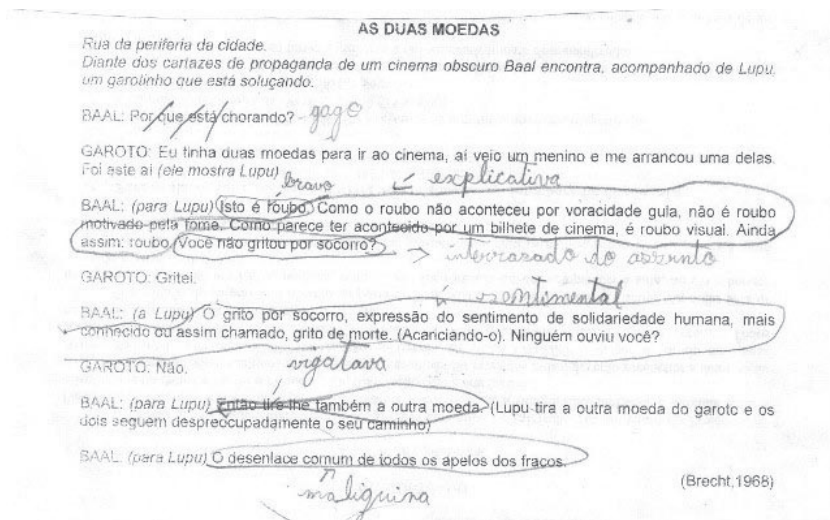 AS DUAS MOEDAS
Rua da periferia da cidade.
Diante dos cartazes de propaganda de um cinema obscuro Baal encontra, acompanhado de Lupu,
um garotinho que está soluçando.
BAAL: Por que está chorando? gago
GAROTO: Eu tinha duas moedas para ir ao cinema, aí veio um menino e me arrancou uma delas.
Foi este aí (ele mostra Lupu)
bravo explicativa
BAAL: (para Lupu) Isto é roubo. Como o roubo não aconteceu por voracidade gula, não é roubo
motivado pela fome. Como parece ter acontecido por um bilhete de cinema, é roubo visual. Ainda
assim: roubo. Você não gritou por socorro?
→ do assunto
GAROTO: Gritei.
BAAL: (a Lupu) O grito por socorro, expressão do sentimento de solidariedade humana, mais
conhecido ou assim chamado, grito de morte. (Acariciando-o). Ninguém ouviu você?
GAROTO: Não.
BAAL: (para Lupu) Então tire-lhe também a outra moeda. (Lupu tira a outra moeda do garoto e os
dois seguem despreocupadamente o seu caminho)
BAAL: (para Lupu) O desenlace comum de todos os apelos dos fracos.
(Brecht,1968)
maliguina